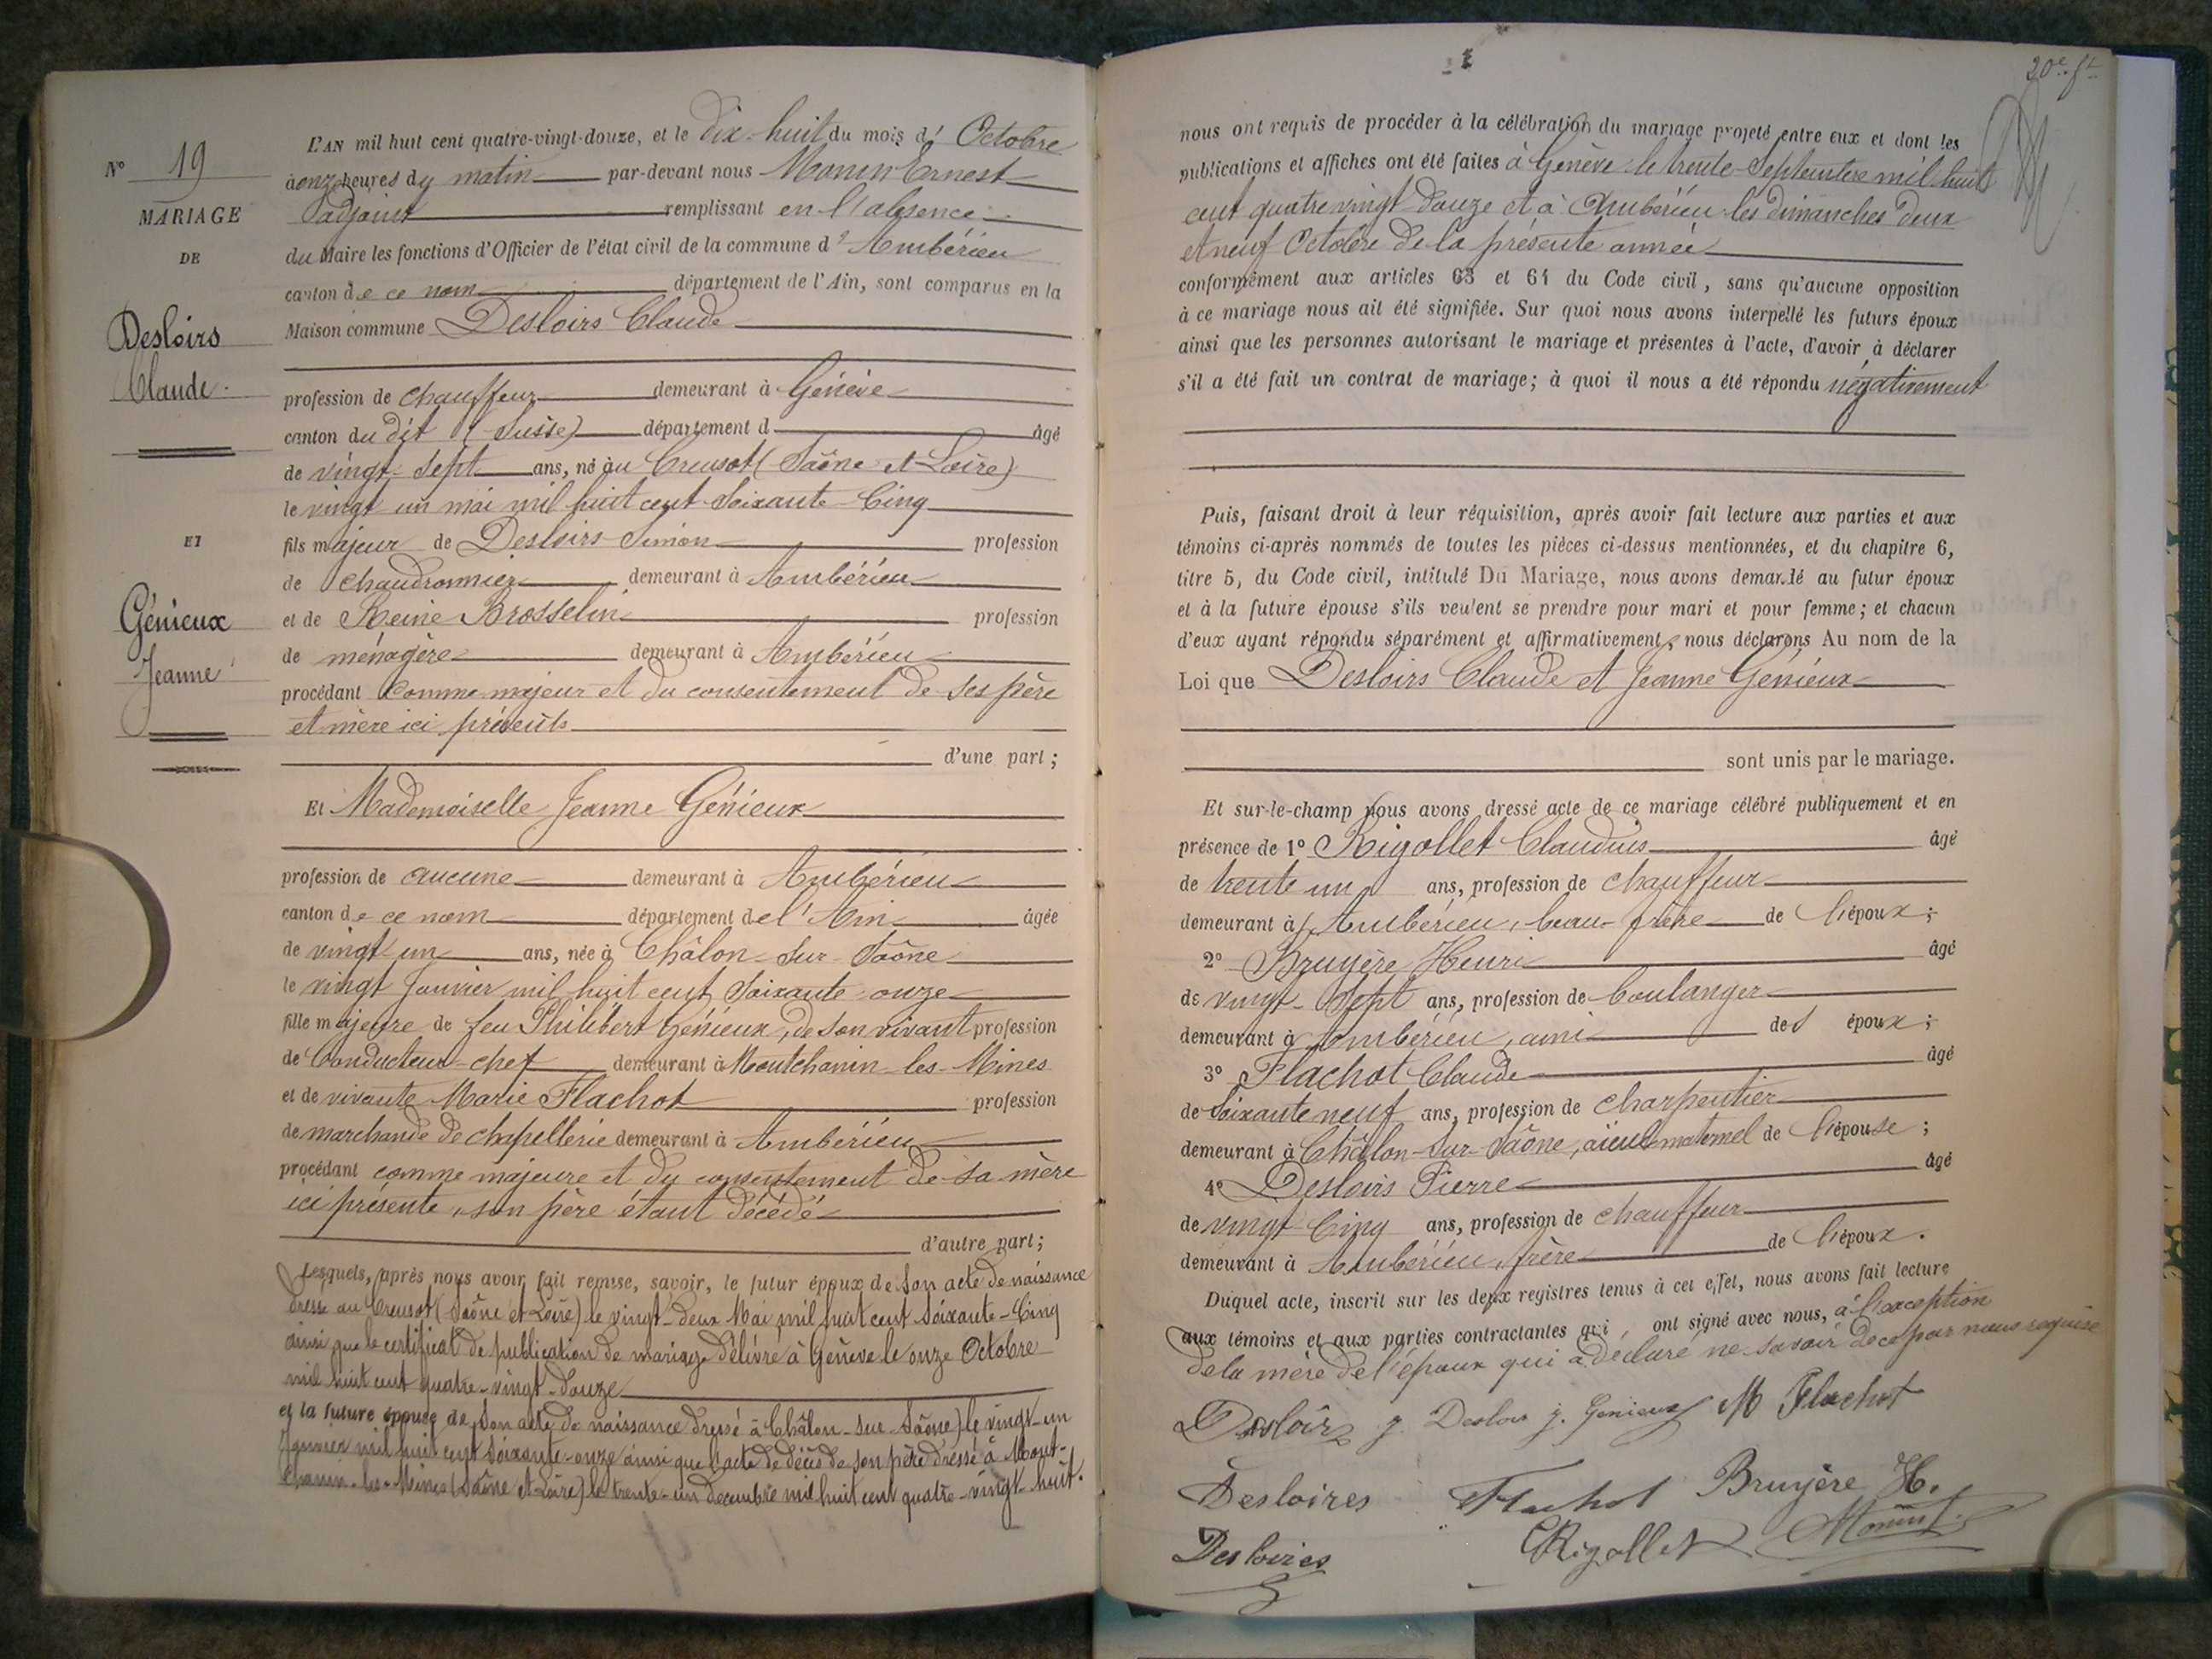 N° 19
MARIAGE
DE
Desloirs
Claude.
ET
Génieux
Jeanne
L'AN mil huit cent quatre-vingt-douze, et le dix-huit du mois d' Octobre
à onze heures du matin par-devant nous Ernest
adjoint remplissant en l'absence
du Maire les fonctions d'Officier de l'état civil de la commune d' Ambérieu
canton de ce nom département de l'Ain, sont comparus en la
Maison commune Desloirs Claude
profession de chauffeur demeurant à Génève
canton du dit (Suisse) département d âgé
de vingt-sept ans, né au Creusot (Saône et Loire)
le vingt un mai mil huit cent soixante-Cinq
fils majeur de Desloirs Simon profession
de chaudronnier demeurant à Ambérieu
et de Reine Brosselin profession
de ménagère demeurant à Ambérieu
procédant comme majeur et du consentement de ses père
et mère ici présents
d'une part ;
Et Mademoiselle Jeanne Génieux
profession de aucune demeurant à Ambérieu
canton de ce nom département de l'Ain âgée
de vingt un ans, née à Châlon-sur-Saône
le vingt Janvier mil huit cent soixante-onze
fille majeure de feu Philibert Génieux, de son vivant profession
de Conducteur-chef demeurant à Montchanin-les-Mines
et de vivante Marie Flachot profession
de marchande de chapellerie demeurant à Ambérieu
procédant comme majeure et du consentement de sa mère
ici présente, son père étant décédé
d'autre part ;
Lesquels, après nous avoir fait remise, savoir, le futur époux de son acte de naissance
dressé au Creusot (Saône et Loire) le vingt-deux Mai mil huit cent soixante-Cinq
ainsi que le certificat de publication de mariage délivré à Génève le onze Octobre
mil huit cent quatre-vingt-douze
et la future épouse de son acte de naissance dressé à Châlon-sur-Saône) le vingt-un
Janvier mil huit cent soixante-onze ainsi que l'acte de décès de son père dressé à Mont-
chanin-les-Mines (Saône et Loire) le trente-un décembre mil huit cent quatre-vingt-huit.
20e ft
nous ont requis de procéder à la célébration du mariage projeté entre eux et dont les
publications et affiches ont été faites à Genève le trente Septembre mil huit
cent quatre vingt douze et à Ambérieu les dimanches deux
et neuf Octobre de la présente année
conformément aux articles 63 et 64 du Code civil, sans qu'aucune opposition
à ce mariage nous ait été signifiée. Sur quoi nous avons interpellé les futurs époux
ainsi que les personnes autorisant le mariage et présentes à l'acte, d'avoir à déclarer
s'il a été fait un contrat de mariage; à quoi il nous a été répondu négativement
Puis, faisant droit à leur réquisition, après avoir fait lecture aux parties et aux
témoins ci-après nommés de toutes les pièces ci-dessus mentionnées, et du chapitre 6,
titre 5, du Code civil, intitulé Du Mariage, nous avons demandé au futur époux
et à la future épouse s'ils veulent se prendre pour mari et pour femme; et chacun
d'eux ayant répondu séparément et affirmativement, nous déclarons Au nom de la
Loi que Desloirs Claude et Jeanne Génieux
sont unis par le mariage.
Et sur-le-champ nous avons dressé acte de ce mariage célébré publiquement et en
présence de 1° Rigollet Claudius âgé
de trente un ans, profession de chauffeur
demeurant à Ambérieu, beau-frère de l'époux ;
2° Bruyère Henri âgé
de vingt-sept ans, profession de boulanger
demeurant à Ambérieu, ami des époux ;
3° Flachot Claude âgé
de soixante neuf ans, profession de charpentier
demeurant à Châlon-sur-Saône, aïeul maternel de l'épouse ;
4° Desloirs Pierre âgé
de vingt Cinq ans, profession de chauffeur
demeurant à Ambérieu, frère de l'époux.
Duquel acte, inscrit sur les deux registres tenus à cet effet, nous avons fait lecture
aux témoins et aux parties contractantes qui ont signé avec nous, à l'exception
de la mère de l'époux qui a déclaré ne savoir de ce par nous requise
Desloirs J. Desloir J. Genieux M Flachot
Desloires Flachot Bruyère H.
Desloires CRigollet